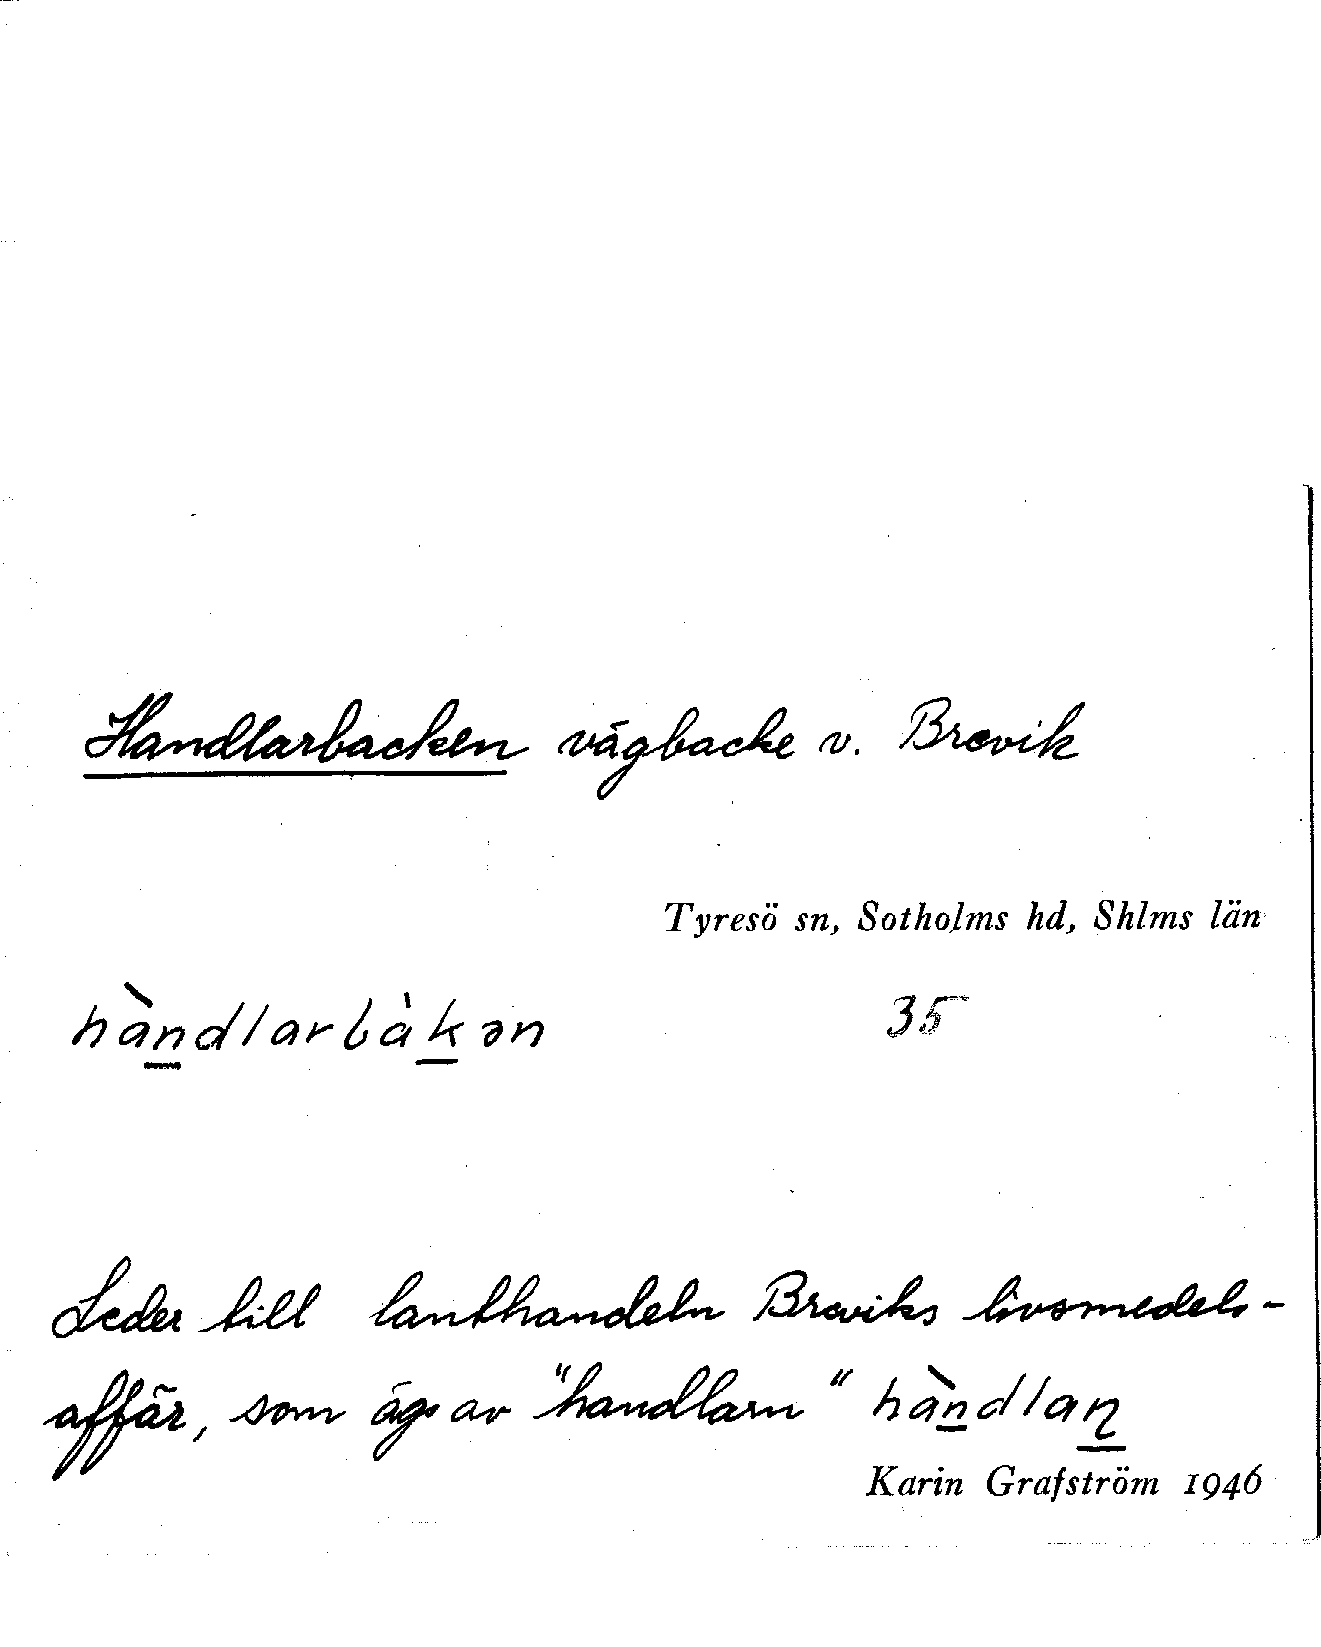 Handlarbacken vägbacke v. Brevik
Tyresö sn, Sotholms hd, Shlms län
hàndlarbàkən 35
Leder till lanthandeln Breviks livsmedels-
affär, som ägs av "handlarn" hàndlaɳ
Karin Grafström 1946